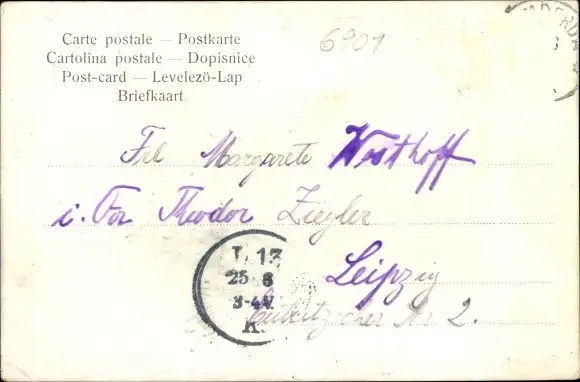 Carte postale — Postkarte
Cartolina postale — Dopisnice
Post-card — Levelező-Lap
Briefkaart
6901
Frl Margarete Westhoff
i. Fa Theodor Ziegler
Leipzig
Nr 2.
L 13
25 8
3-4V
K.